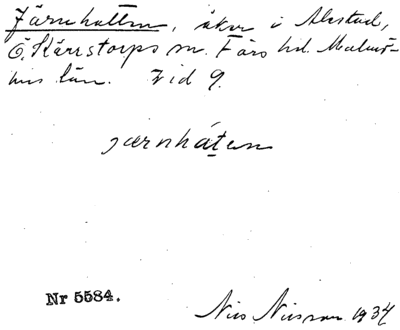 Järnhatten, åker i Alestad,
Ö. Kärrstorps sn. Färs hd. Malmö-
hus län. Vid 9.
järnháten
Nr 5584.
Nils Nilsson 1934